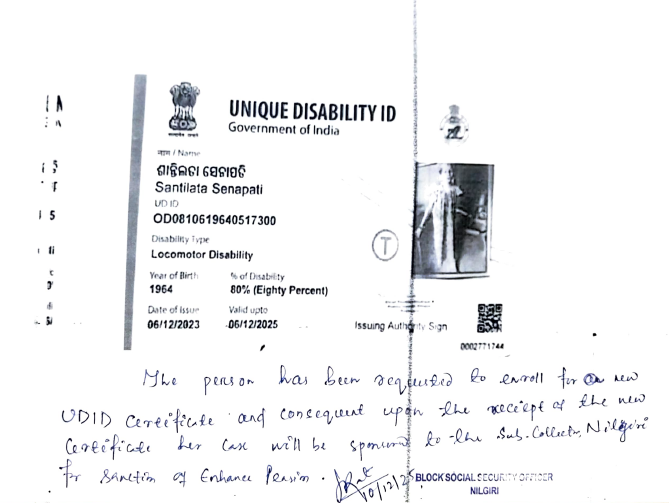 UNIQUE DISABILITY ID
Government of India
नाम / Name
ଶାନ୍ତିଲତା ସେନାପତି
Santilata Senapati
UD ID
OD0810619640517300
Disability Type
Locomotor Disability
Year of Birth % of Disability
1964 80% (Eighty Percent)
Date of Issue Valid upto
06/12/2023 06/12/2025
T
Issuing Authority Sign
0002771744
The person has been requested to enroll for new
UDID Certificate and consequent upon the receipt of the new
Certificate her case will be sponsored to the Sub-Collector, Nilgiri
for Sanction of Enhance Pension.
10/12/25
BLOCK SOCIAL SECURITY OFFICER
NILGIRI